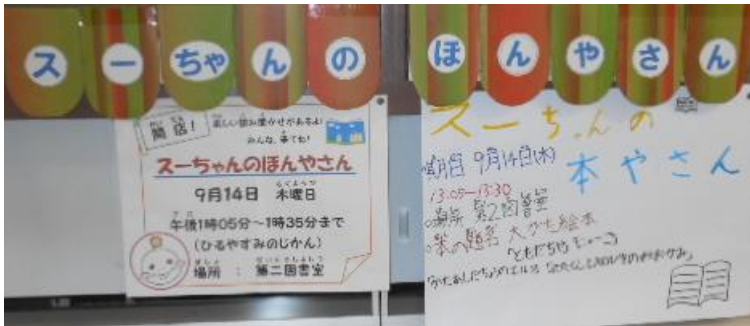 スーちゃんの ほんやさん
開店! 楽しい読み聞かせがあるよ!
みんな、来てね!
スーちゃんのほんやさん
9月14日 木曜日
午後1時05分~1時35分まで
(ひるやすみのじかん)
場所 : 第二図書室
スーちゃんの
本やさん
期日 9月14日(木)
13:05-13:30
場所 第2図書室
本の題名 大がた絵本